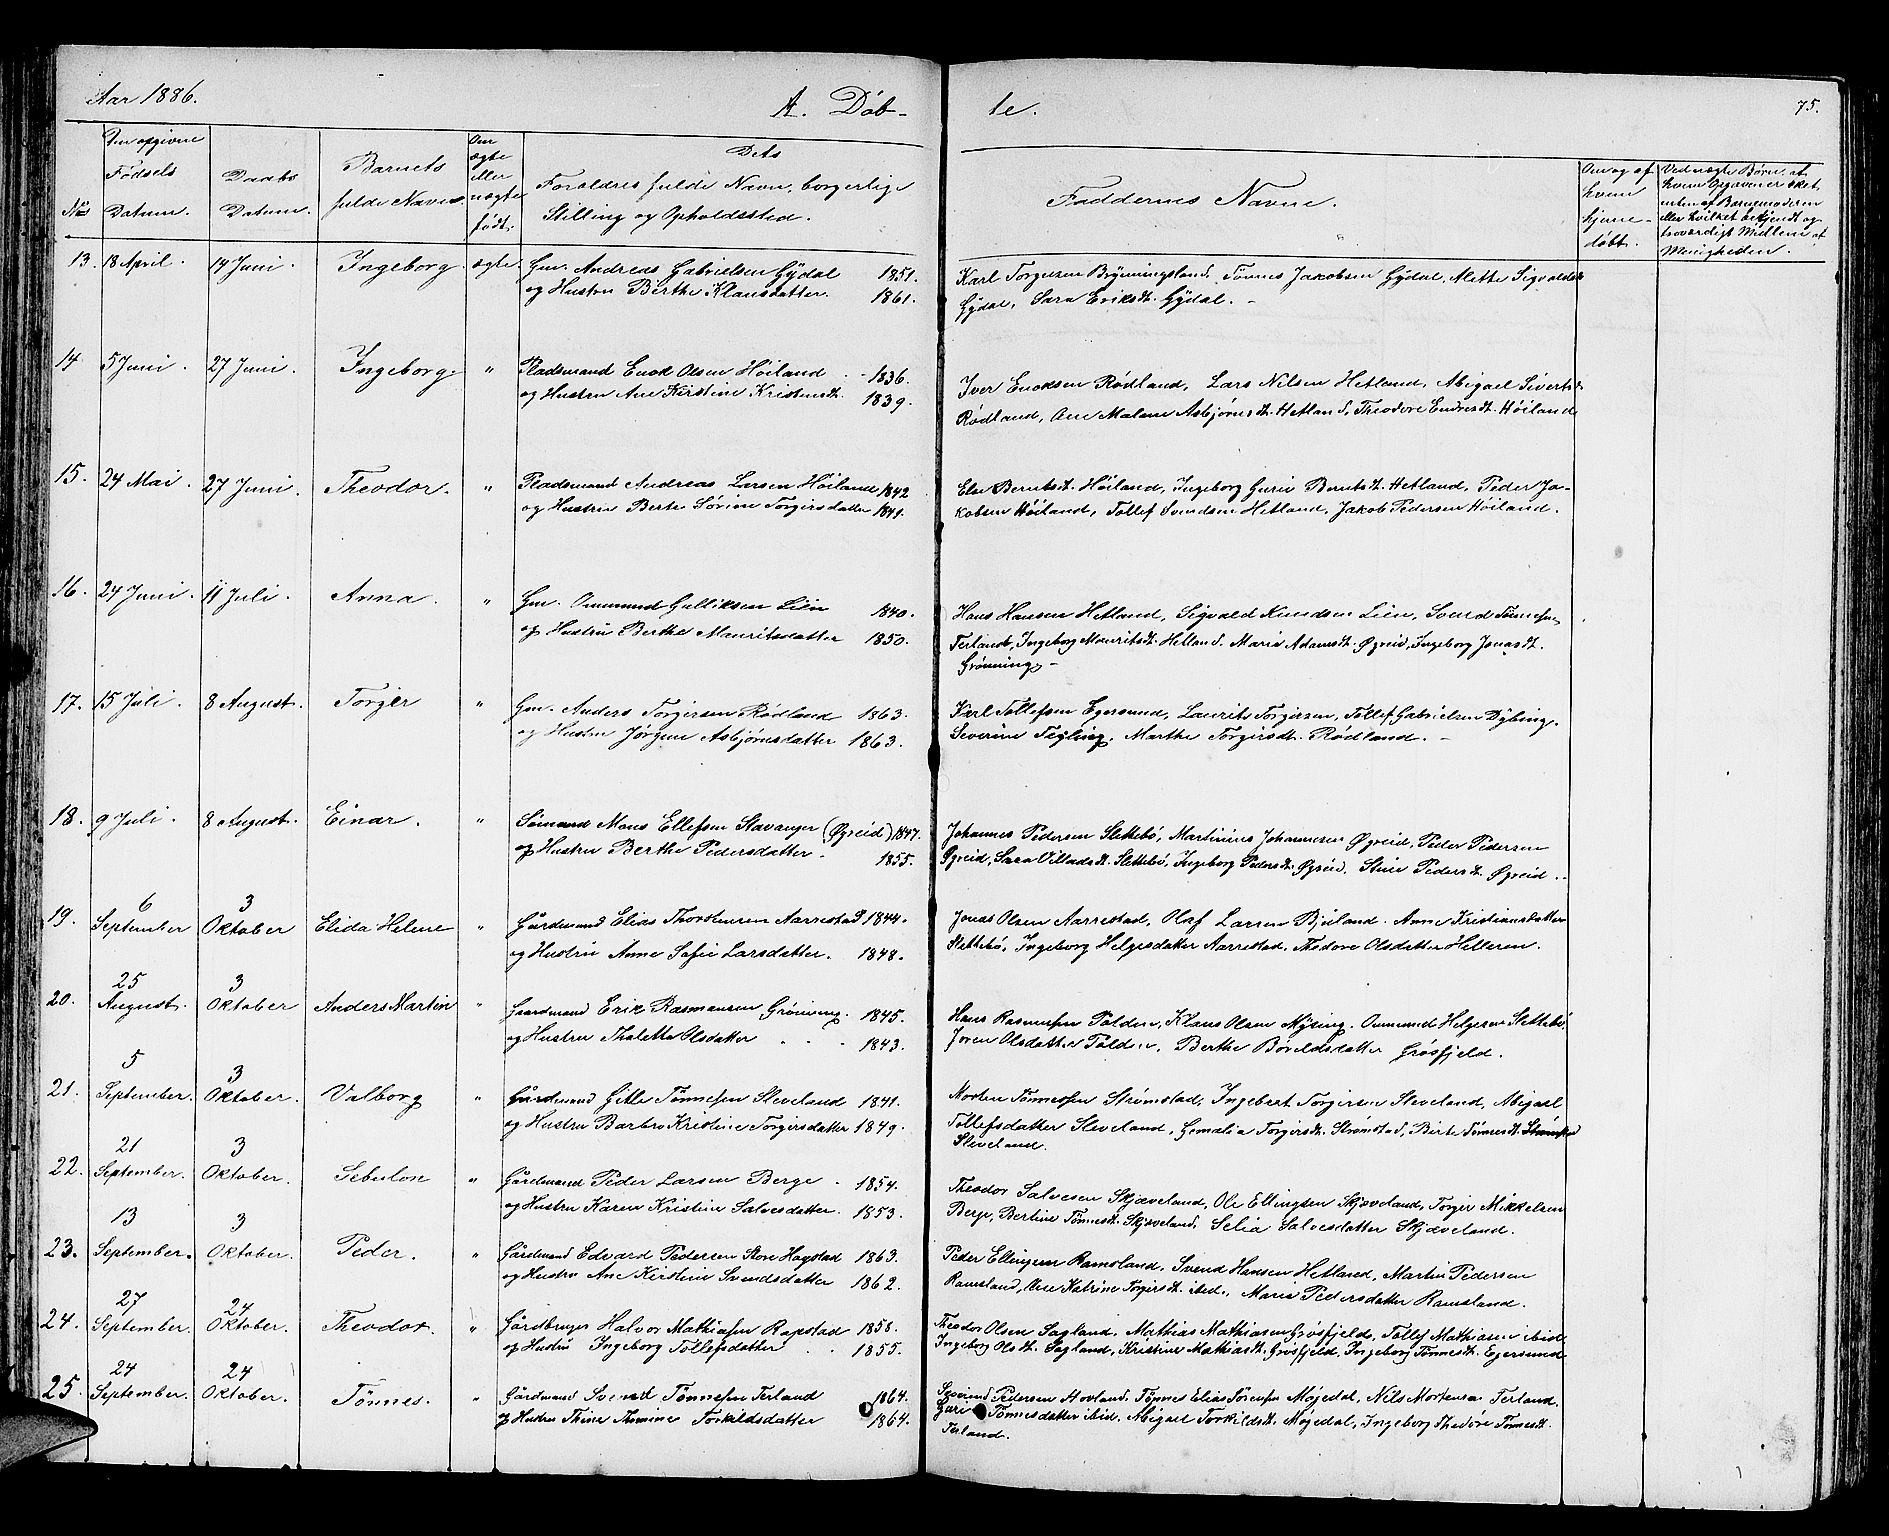 Aar 1886. A. Døb- te. 75.
No Den opgivne Fødsels Datum. Daabs Datum. Barnets fulde Navn. Om ægte eller uægte født. Dets Forældres fulde Navn, borgerlige Stilling og Opholdssted. Faddernes Navne. Om og af hvem hjemme- døbt. Ved uægte Børn, af hvem Opgaven er sket enten af Barnemoderen eller hvilket bekjendt og troværdigt Medlem af Menigheden.
13. 18 April. 14 Juni. Ingeborg. ægte. Gm. Andreas Gabrielsen Gydal 1851. Karl Torgersen Bryningsland, Tønnes Jakobsen Gydal, Alette Sigvaldsd.
og Hustru Berthe Klausdatter. 1861. Gydal, Sara Eriksdt. Gydal. -
14. 5 Juni. 27 Juni. Ingeborg. " Pladsmand Enok Olsen Høiland - 1836. Iver Enoksen Rødland, Lars Nilsen Hetland, Abigael Sivertsd.
og Hustru Ane Kirstine Kristensdt. 1839. Rødland, Ane Malene Asbjørnsdt. Hetland, Theodore Endresdt. Høiland
15. 24 Mai. 27 Juni. Theodor. " Pladsmand Andreas Larsen Høiland 1842 Else Berntsdt. Høiland, Ingeborg Gurie Berntsdt. Hetland, Peder Ja-
og Hustru Berte Sørine Torgersdatter 1841. kobsen Høiland, Tollef Svendsen Hetland, Jakob Pedersen Høiland.
16. 24 Juni. 11 Juli. Anna. " Gm. Ommund Gulliksen Lien 1840. Hans Hansen Hetland, Sigvald Knudsen Lien, Svend Tønnesen
og Hustru Berthe Mauritsdatter 1850. Terland, Ingeborg Mauritsdt. Hetland. Marie Adamsdt. Øgreid, Ingeborg Jonasdt.
Grønning. -
17. 15 Juli. 8 August. Torger " Gm. Anders Torgersen Rødland 1863. Karl Tollefsen Egersund, Laurits Torgersen, Tollef Gabrielsen Dybing.
og Hustru Jørgine Asbjørnsdatter 1863. Severine Tegling, Marthe Torgersdt. Rødland. -
18. 9 Juli. 8 August. Einar. " Sømand Mons Ellefsen Stavanger (Øgreid) 1847. Johannes Pedersen Slettebø, Martinius Johannesen Øgreid, Peder Pedersen
og Hustru Berthe Pedersdatter. 1855. Øgreid, Sara Villadsdt. Slettebø, Ingeborg Pedersdt. Øgreid, Stine Pedersdt. Øgreid.
19. 6 September 3 Oktober Elida Helene " Gårdmand Elias Thorstensen Aarrestad 1844. Jonas Olsen Aarrestad, Olaf Larsen Bjuland. Anne Kristiansdatter
og Hustru Anne Sofie Larsdatter. 1848. Slettebø, Ingeborg Helgesdatter Aarrestad, Thedore Olsdatter Helleren.
20. 25 August. 3 Oktober Anders Martin " Gaardmand Erik Rasmussen Grøning. 1845. Hans Rasmussen Tolden, Klaus Olsen Mysing. Ommund Helgesen Slettebø,
og Hustru Thalette Olsdatter 1843. Joren Olsdatter Tolden, Berthe Børildsdatter Grøsfjeld.
21. 5 September. 3 Oktober. Valborg " Gårdmand Gitle Tønnesen Sleveland 1841. Morten Tønnessen Strømstad, Ingebert Torgersen Sleveland, Abigael
og Hustru Barbro Kristine Torgersdatter 1849. Tollefsdatter Sleveland, Gemalia Torgersdt. Strømstad, Berte Tønnesdt.
Sleveland.
22. 21 September. 3 Oktober. Sebulon " Gårdmand Peder Larsen Berge 1854. Theodor Salvesen Skjæveland, Ole Ellingsen Skjæveland, Torger Mikkelsen
og Hustru Karen Kristine Salvesdatter. 1853. Berge, Bertine Tønnesdt. Skjæveland, Selia Salvesdatter Skjæveland.
23. 13 September. 3 Oktober. Peder. " Gårdmand Edvard Pedersen Store Hagstad 1863. Peder Ellingsen Ramsland, Svend Hansen Hetland, Martin Pedersen
og Hustru Ane Kirstine Svendsdatter 1862. Ramsland, Ane Katrine Torgersdt. ibid., Maria Pedersdatter Ramsland.
24. 27 September. 24 Oktober. Theodor. " Gårdbruger Halvor Mathiasen Rapstad 1858. Theodor Olsen Sagland, Mathias Mathiasen Grøsfjeld, Tollef Mathiasen ibid
og Hustru Ingeborg Tollefsdatter 1855. Ingeborg Olsdt. Sagland, Kristine Mathiasdt. Grøsfjeld, Ingeborg Tønnesdt. Egersund
25. 24 September. 24 Oktober. Tønnes. " Gårdmand Svend Tønnesen Terland 1864. Pedersen Hovland, Tønnes Elias Sørensen Møgedal, Nils Mortensen Terland.
og Hustru Thine Tomine Torkildsdatter 1864. Guri Tønnesdatter ibid, Abigael Torkildsdt. Møgedal, Ingeborg Thedore Tønnesdt.
Terland.